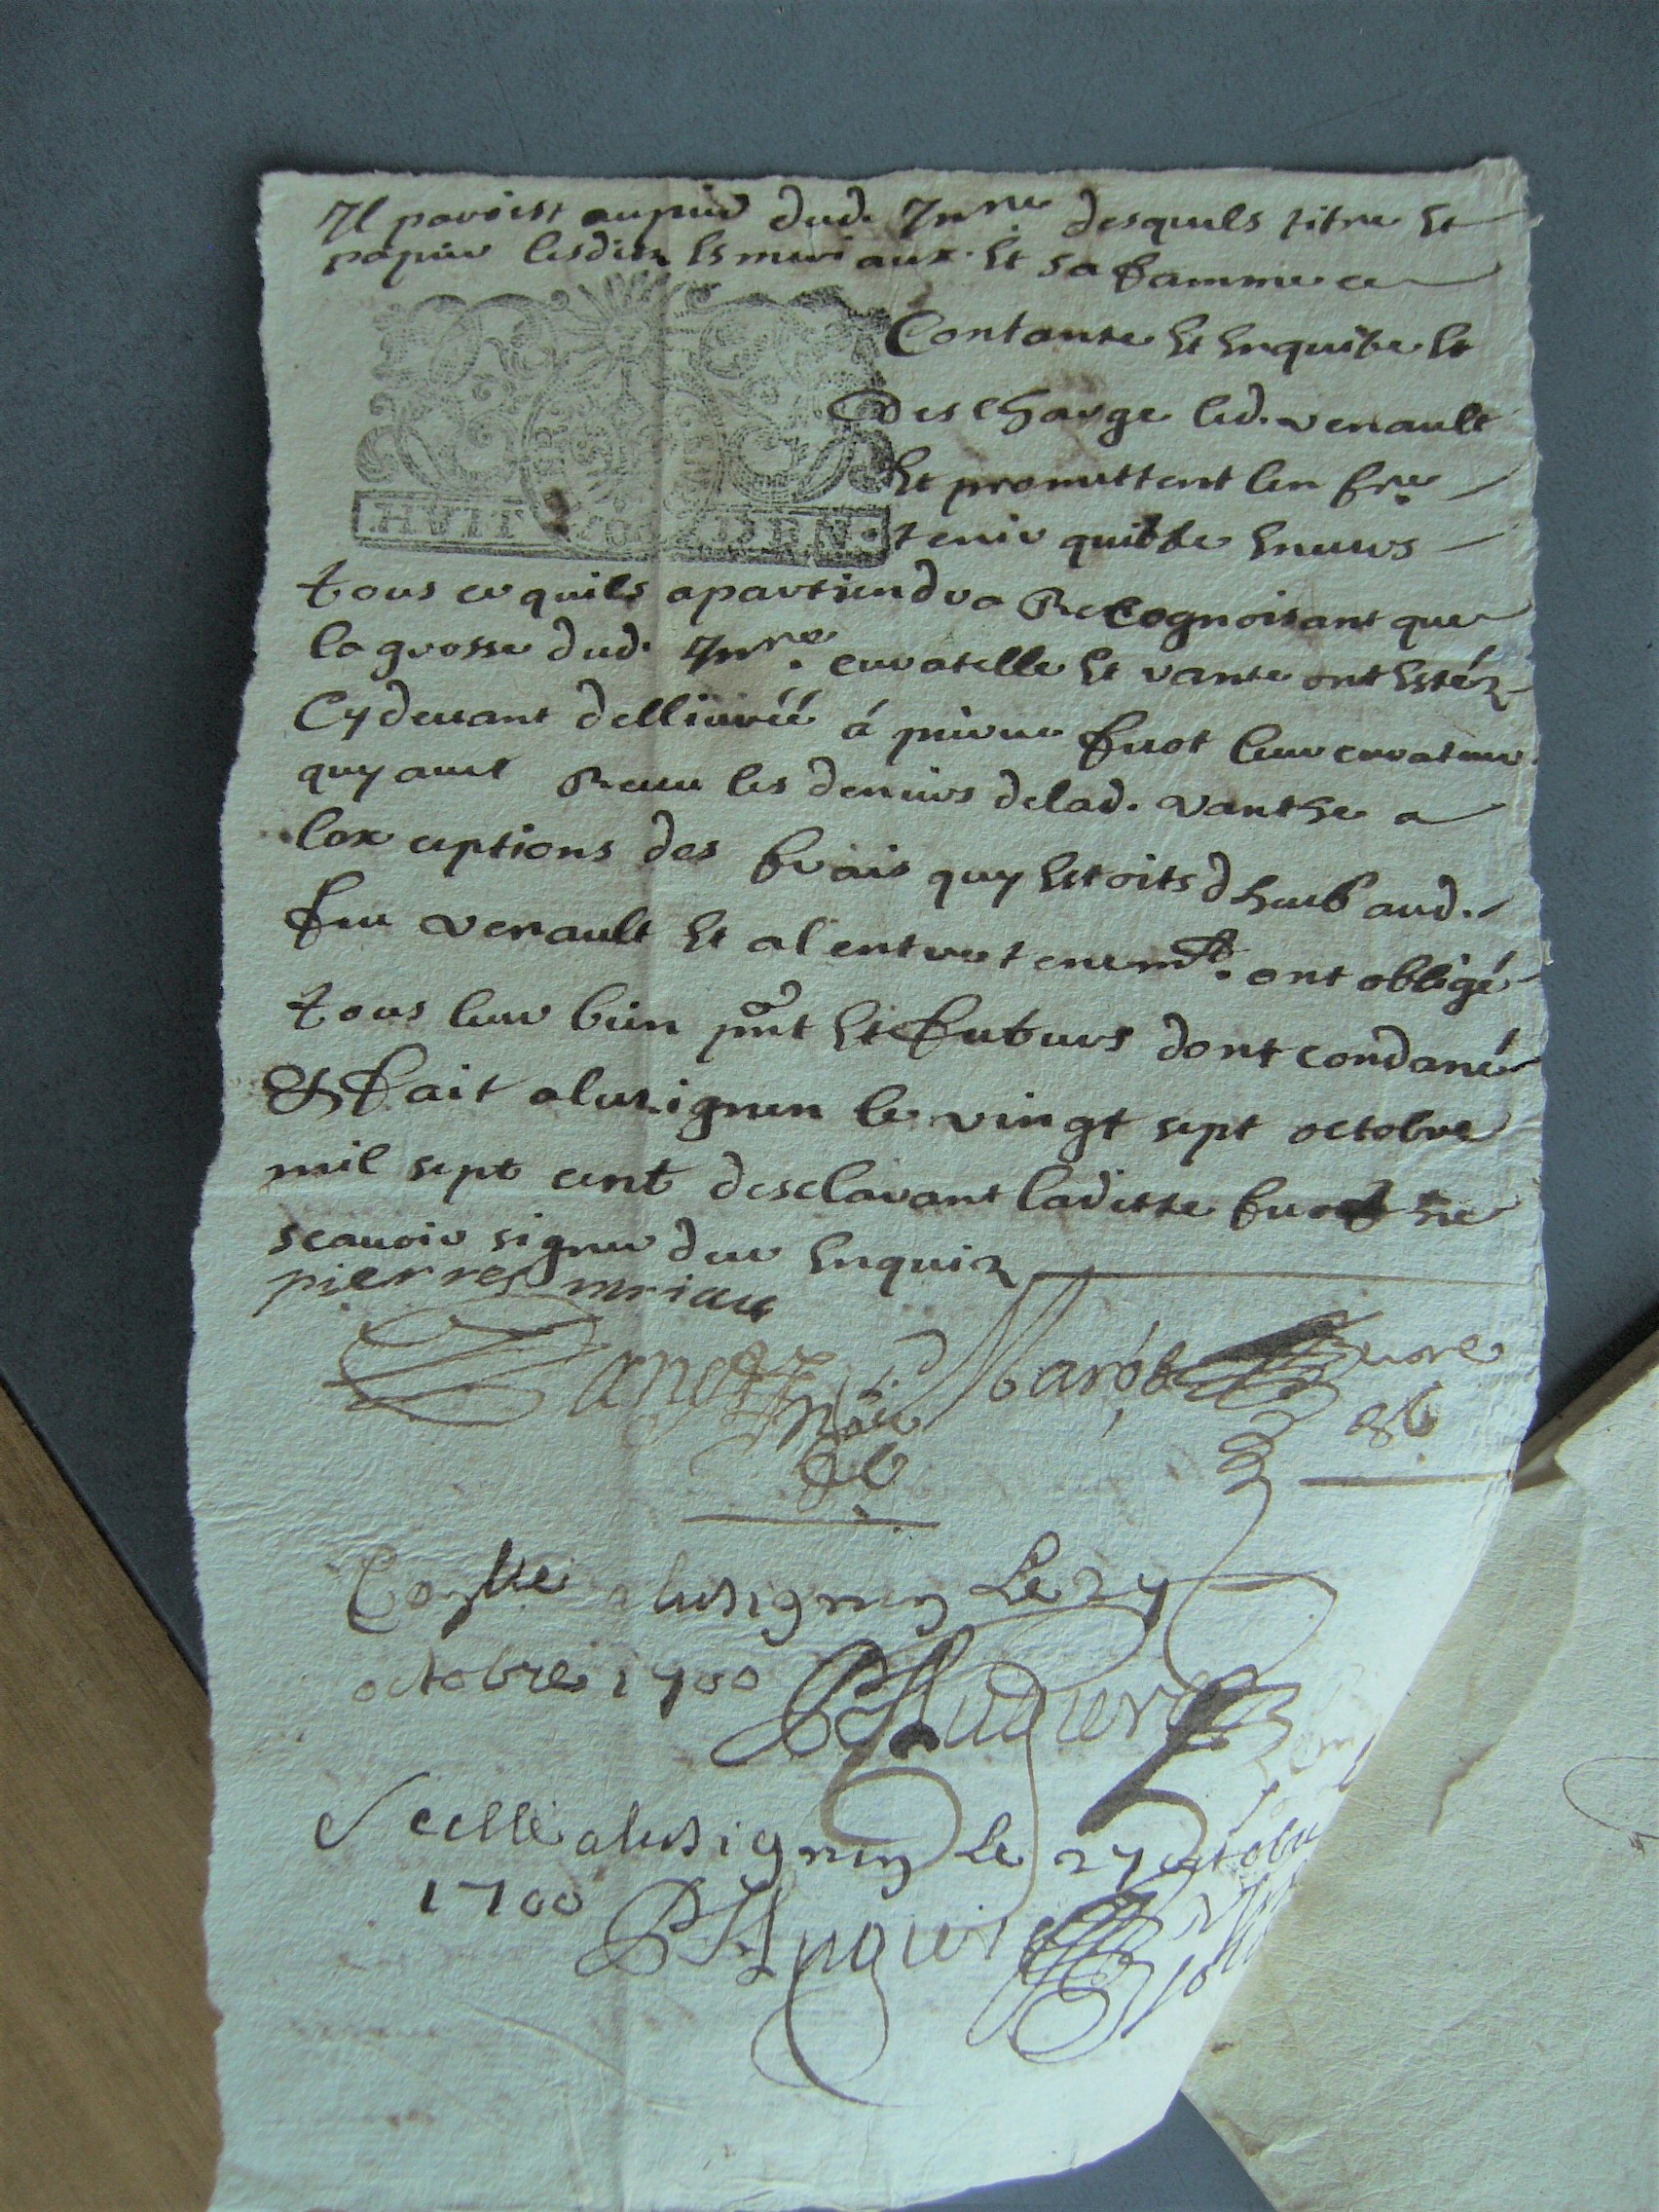 Il paroist au pied dud. Inre desquels titre Et
papier lesditz Esmeriaux Et sa famme ce
Contante Et Enquitte Et
Descharge led. Venault
Et promettent len fre
tenir quitte Envers
tous ce quils apartiendra Recognoisant que
la grosse dud. Inre. curatelle Et vante ont Estéz
Cy devant dellivréé á pierre fuot leur curateur
quy avet Receu les deniers delad. vanthe a
lex ceptions des frais quy Estoits dheub aud.
feu Venault Et a lentretenemt. ont obligé
tous leur bien pnt Et futurs dont condané
Et fait a lusignen le vingt sept octobre
mil sept cent desclarant laditte fuot ne
scavoir signer de ce Enquiz
pierre Esmriau
Coñlle a lusignen Le 27
octobre 1700 Huguer
Scellé a lusignen Le 27 octobre
1700 Huguer